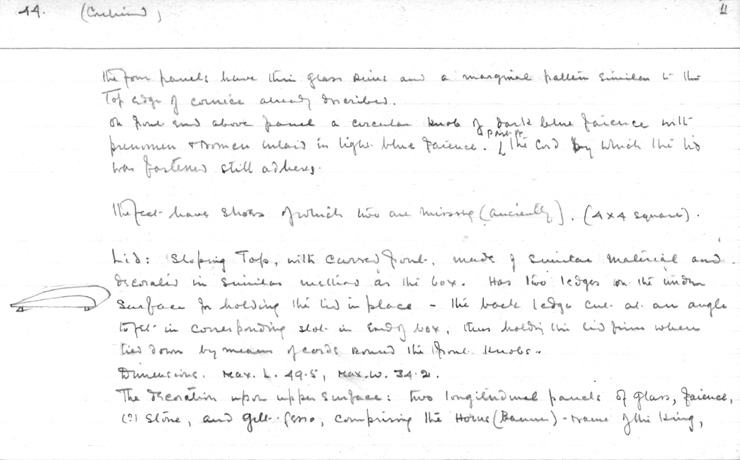 44. (Continued) II
the four panels have thin glass veins and a marginal pattern similar to the
Top edge of cornice already described.
On front end above panel a circular knob of dark blue faience with
prenomen & nomen inlaid in light blue faience. part of the cord by which the lid
was fastened still adheres.
The feet have shoes of which two are missing (anciently). (4x4 square).
Lid: Sloping Top, with curved front, made of similar material and
decorated in similar method as the box. Has two ledges on the under
surface for holding the lid in place - the back ledge cut at an angle
to fit in corresponding slot in end of box, thus holding the lid firm when
tied down by means of cords round the front knobs.
Dimensions. Max. L. 49.5, Max. W. 34.2.
The decoration upon upper surface: two longitudinal panels of glass, faience,
(?) stone, and gilt-gesso, comprising the Horus (Banner)-name of the King,